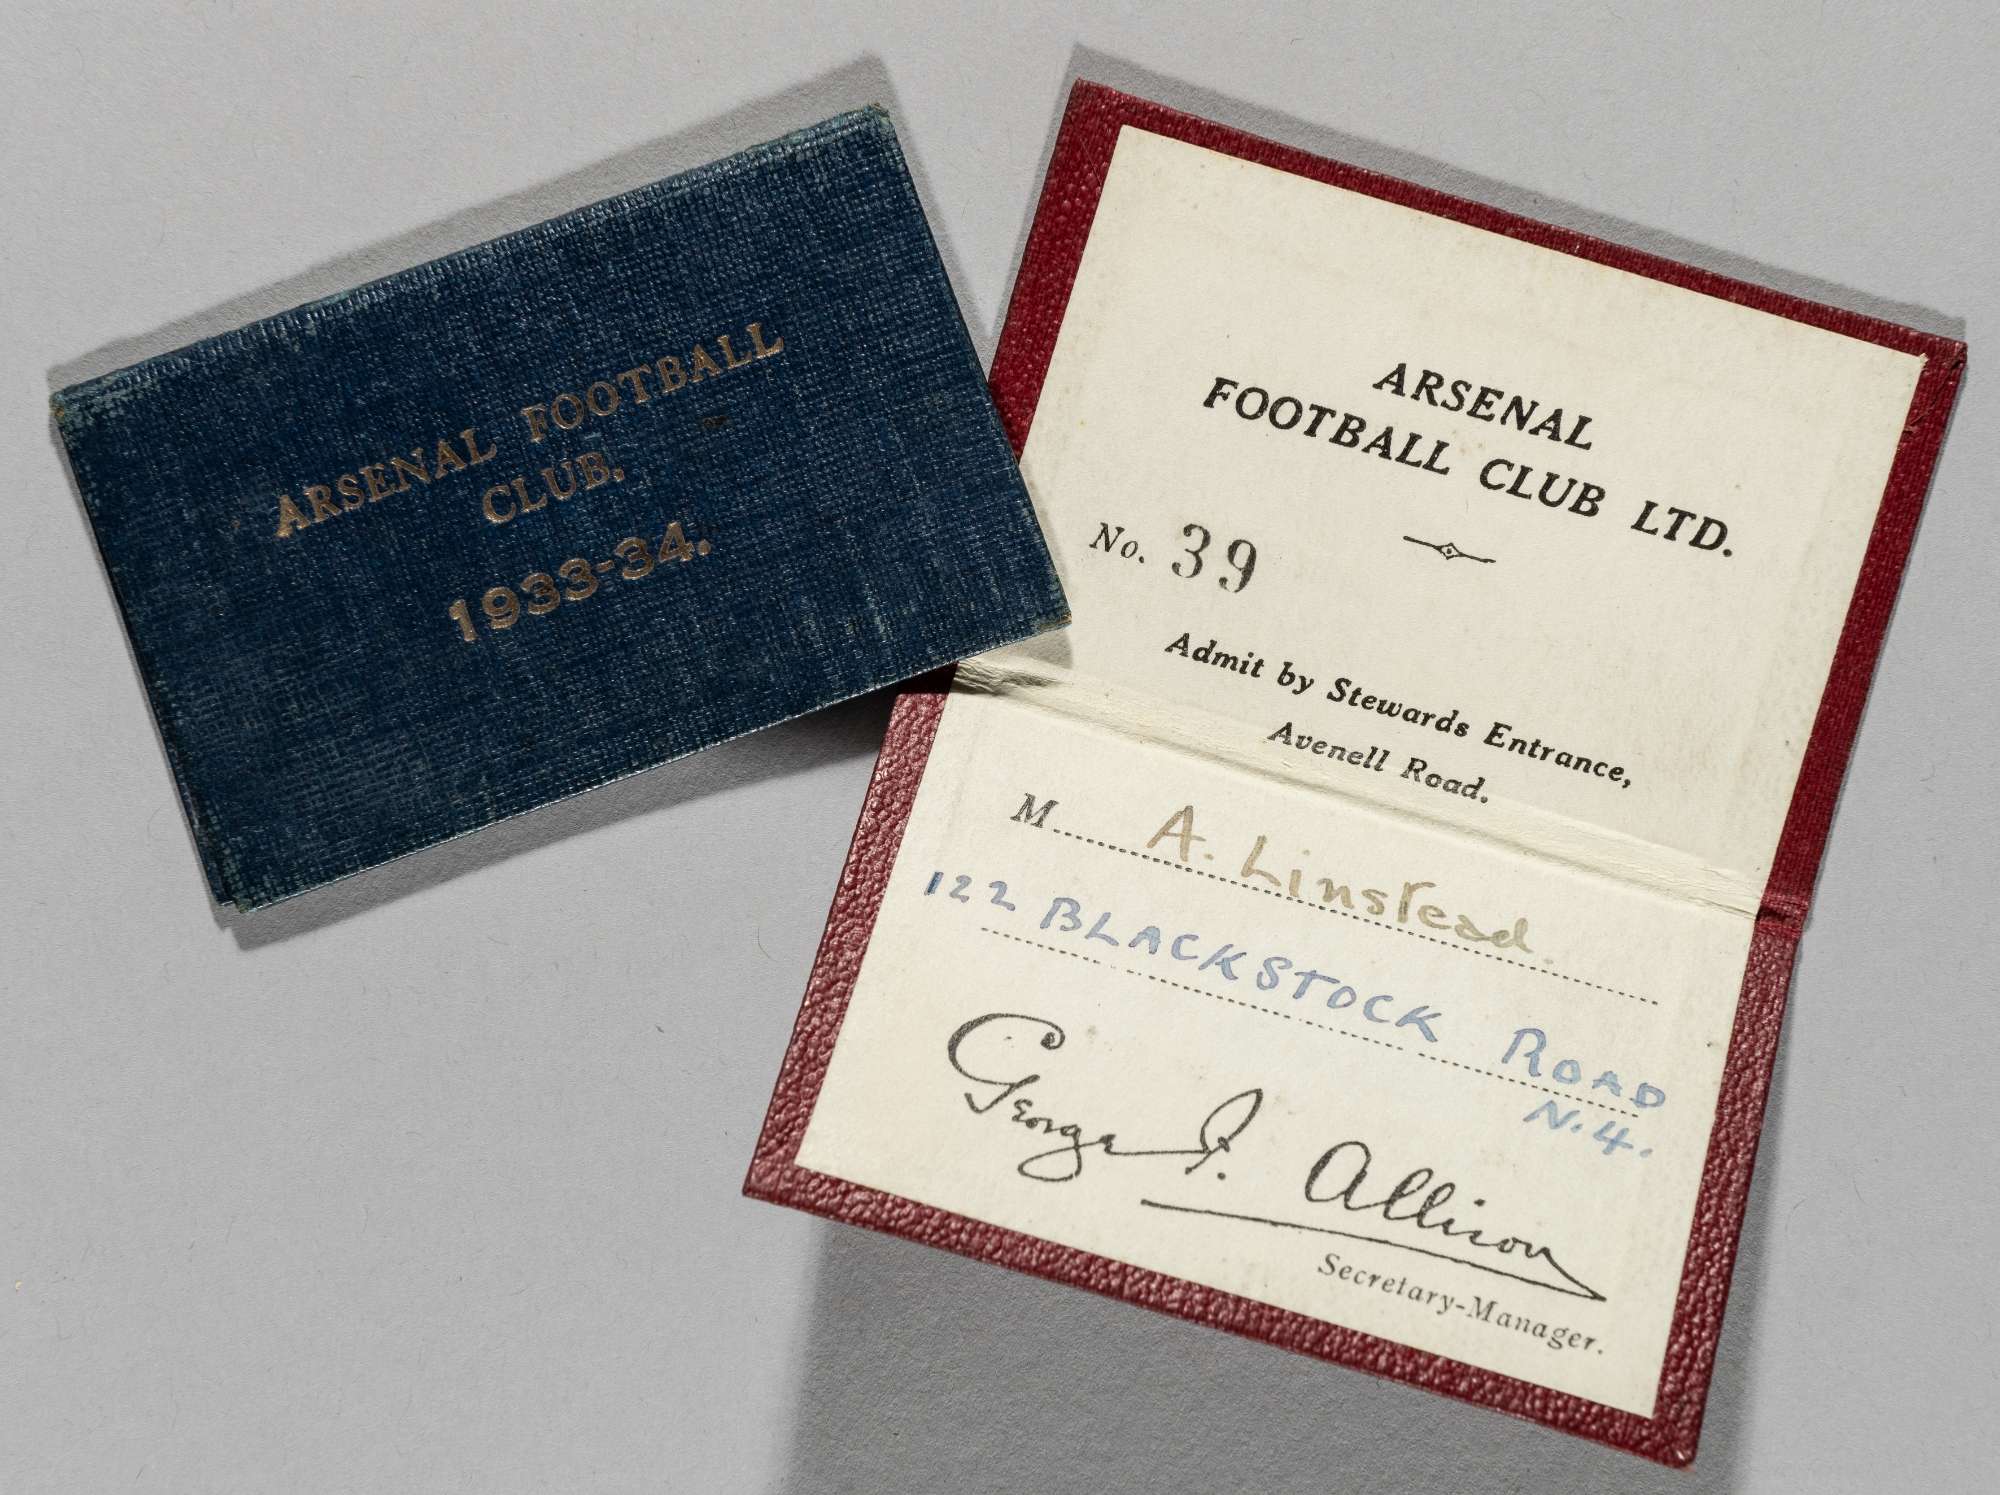 ARSENAL FOOTBALL
CLUB.
1933-34.
ARSENAL
FOOTBALL CLUB LTD.
No. 39
Admit by Stewards Entrance,
Avenell Road.
M A. Linstead
122 BLACKSTOCK ROAD
N.4.
George F. Allison
Secretary-Manager.